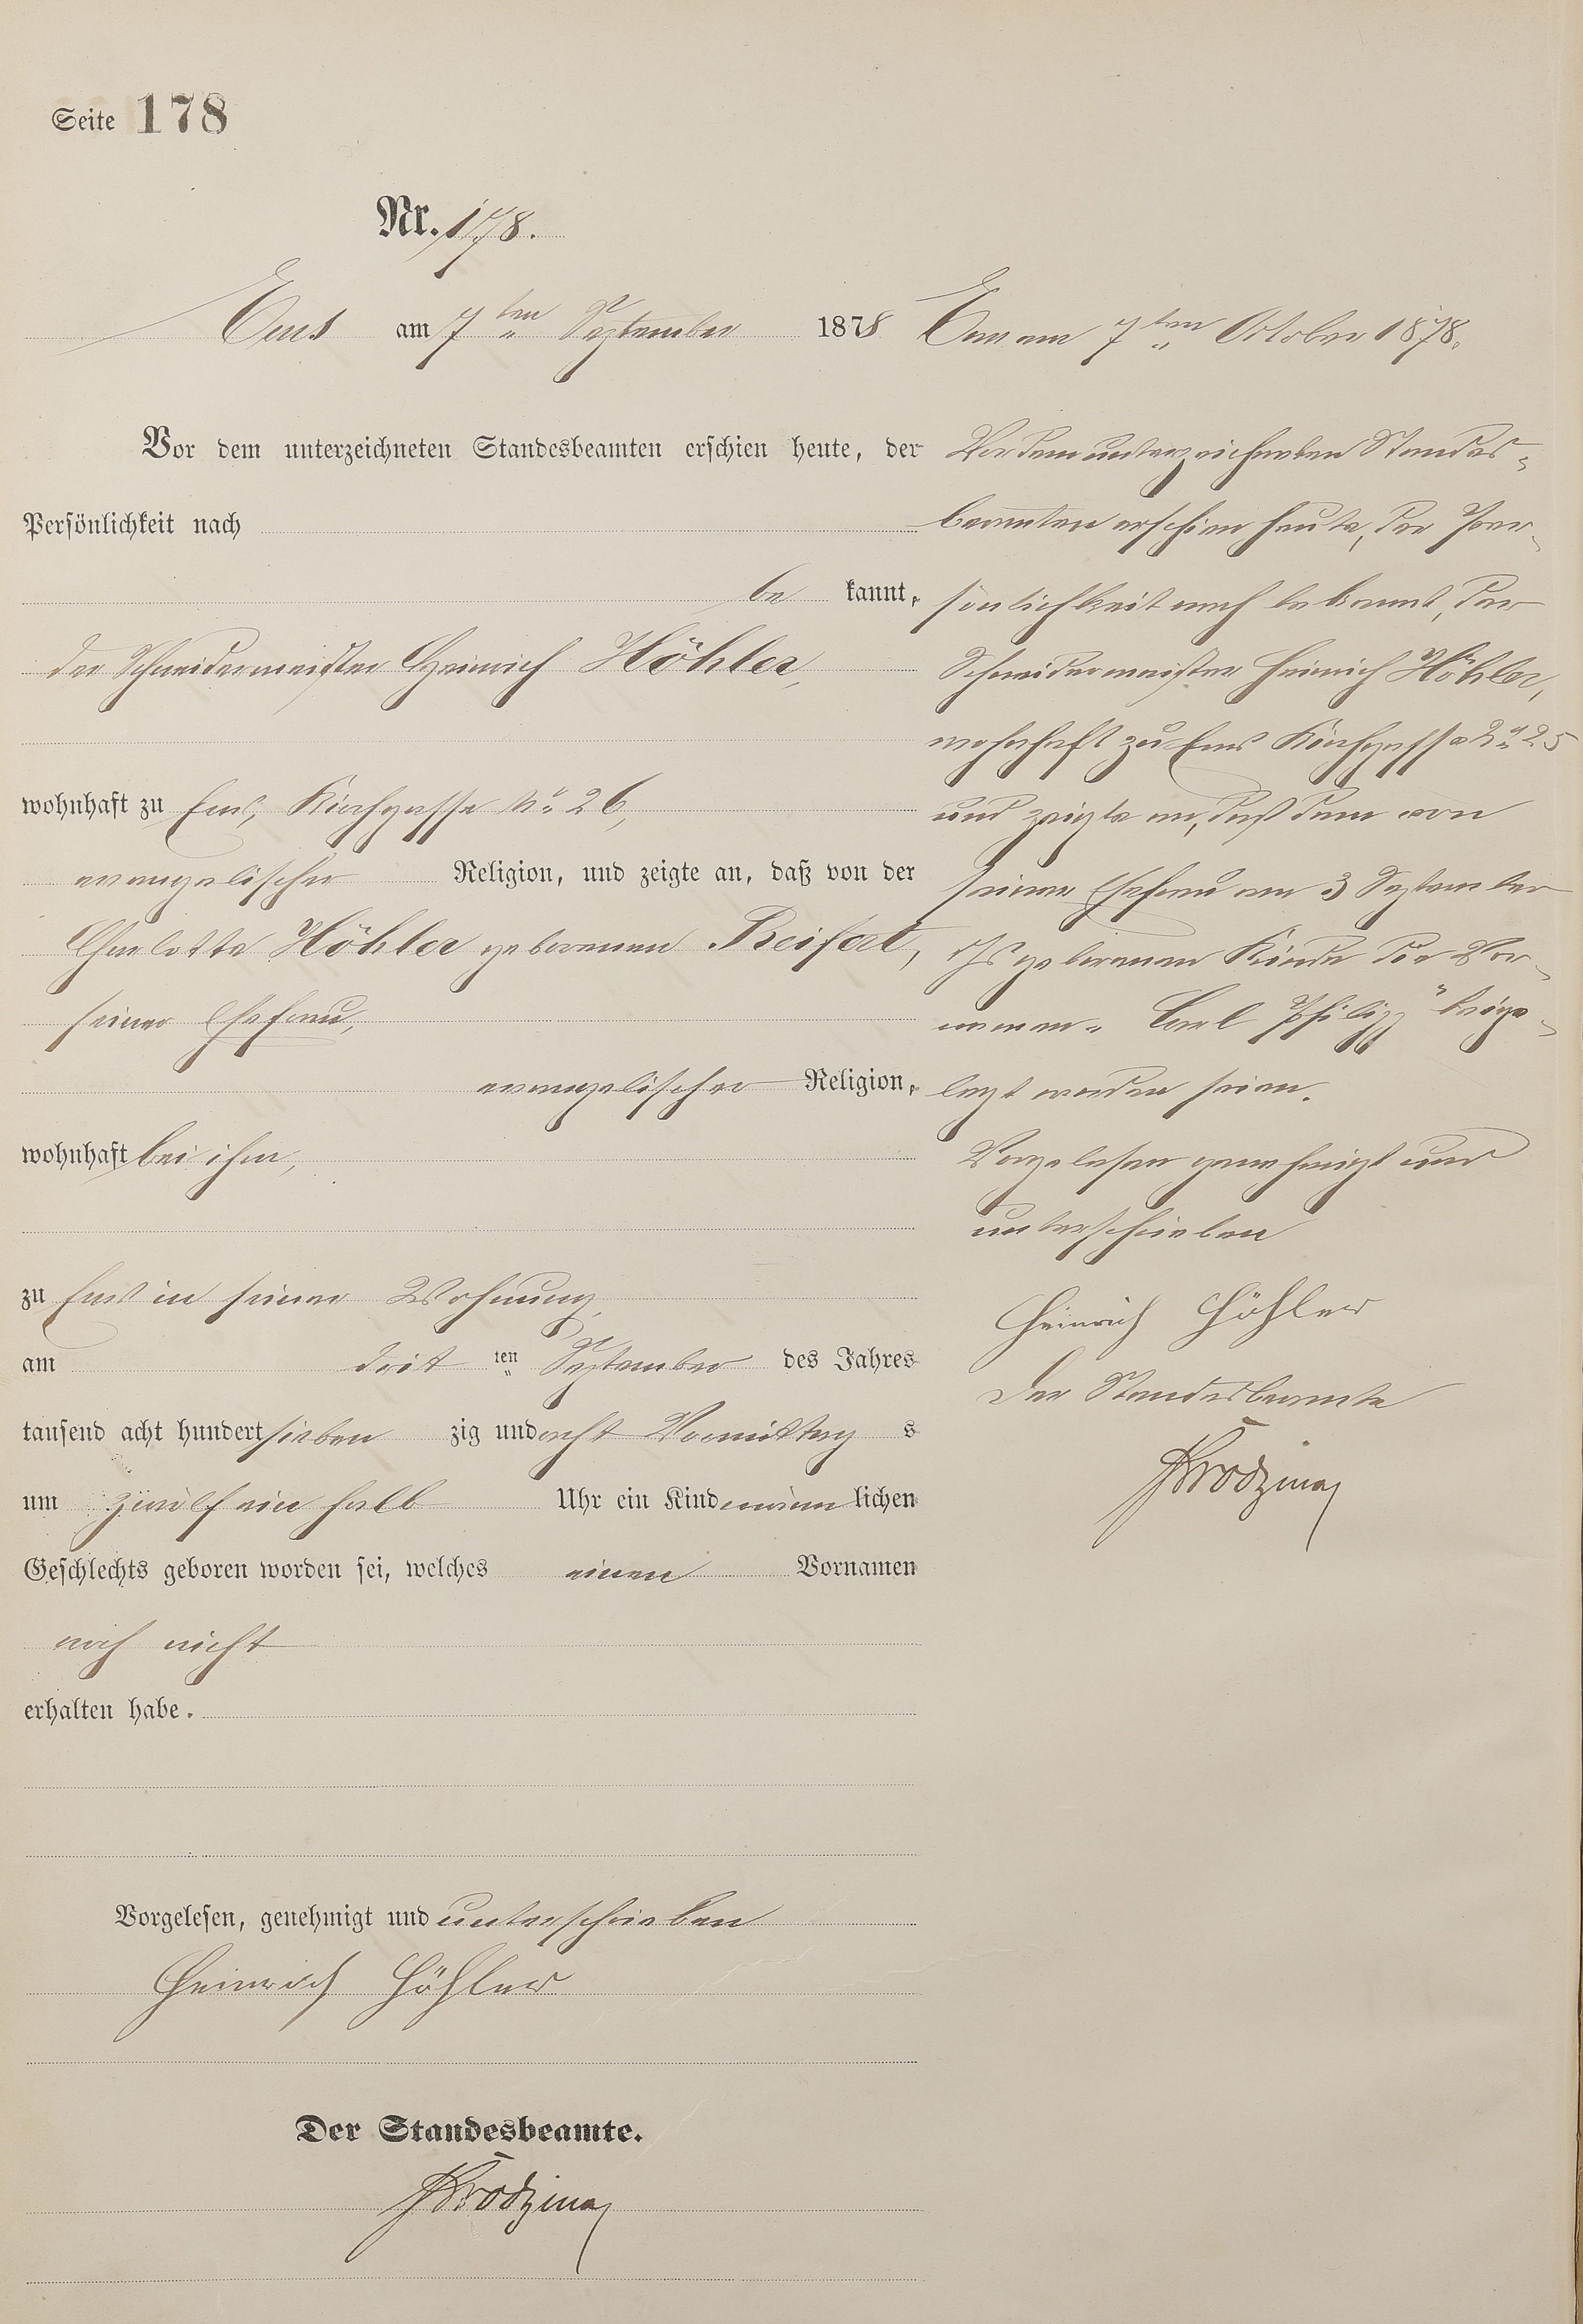 Seite 178
Nr. 178.
Ems am 7ten September 1878
Vor dem unterzeichneten Standesbeamten erschien heute, der
Persönlichkeit nach
be kannt,
der Schneidermeister Heinrich Höhler,
wohnhaft zu Ems, Kirchgasse No 26,
evangelischer Religion, und zeigte an, daß von der
Charlotte Höhler geborenen Reifert,
seiner Ehefrau,
evangelischer Religion,
wohnhaft bei ihm,
zu Ems in seiner Wohnung,
am dritten September des Jahres
tausend acht hundert sieben zig und acht Vormittag s
um zwölf ein halb Uhr ein Kind männ lichen
Geschlechts geboren worden sei, welches einen Vornamen
noch nicht
erhalten habe.
Vorgelesen, genehmigt und unterschrieben
Heinrich Höhler
Der Standesbeamte.
Ems am 7ten October 1878.
Vor dem unterzeichneten Standes-
beamten erschien heute, der Per-
sönlichkeit nach bekannt, der
Schneidermeister Heinrich Höhler,
wohnhaft zu Ems Kirchgasse
und zeigte an, daß dem von
seiner Ehefrau am 3 September
geborenen Kinde die Vor-
namen „Carl Philipp" beige-
legt worden seien.
Vorgelesen genehmigt und
unterschrieben
Heinrich Höhler
Der Standesbeamte